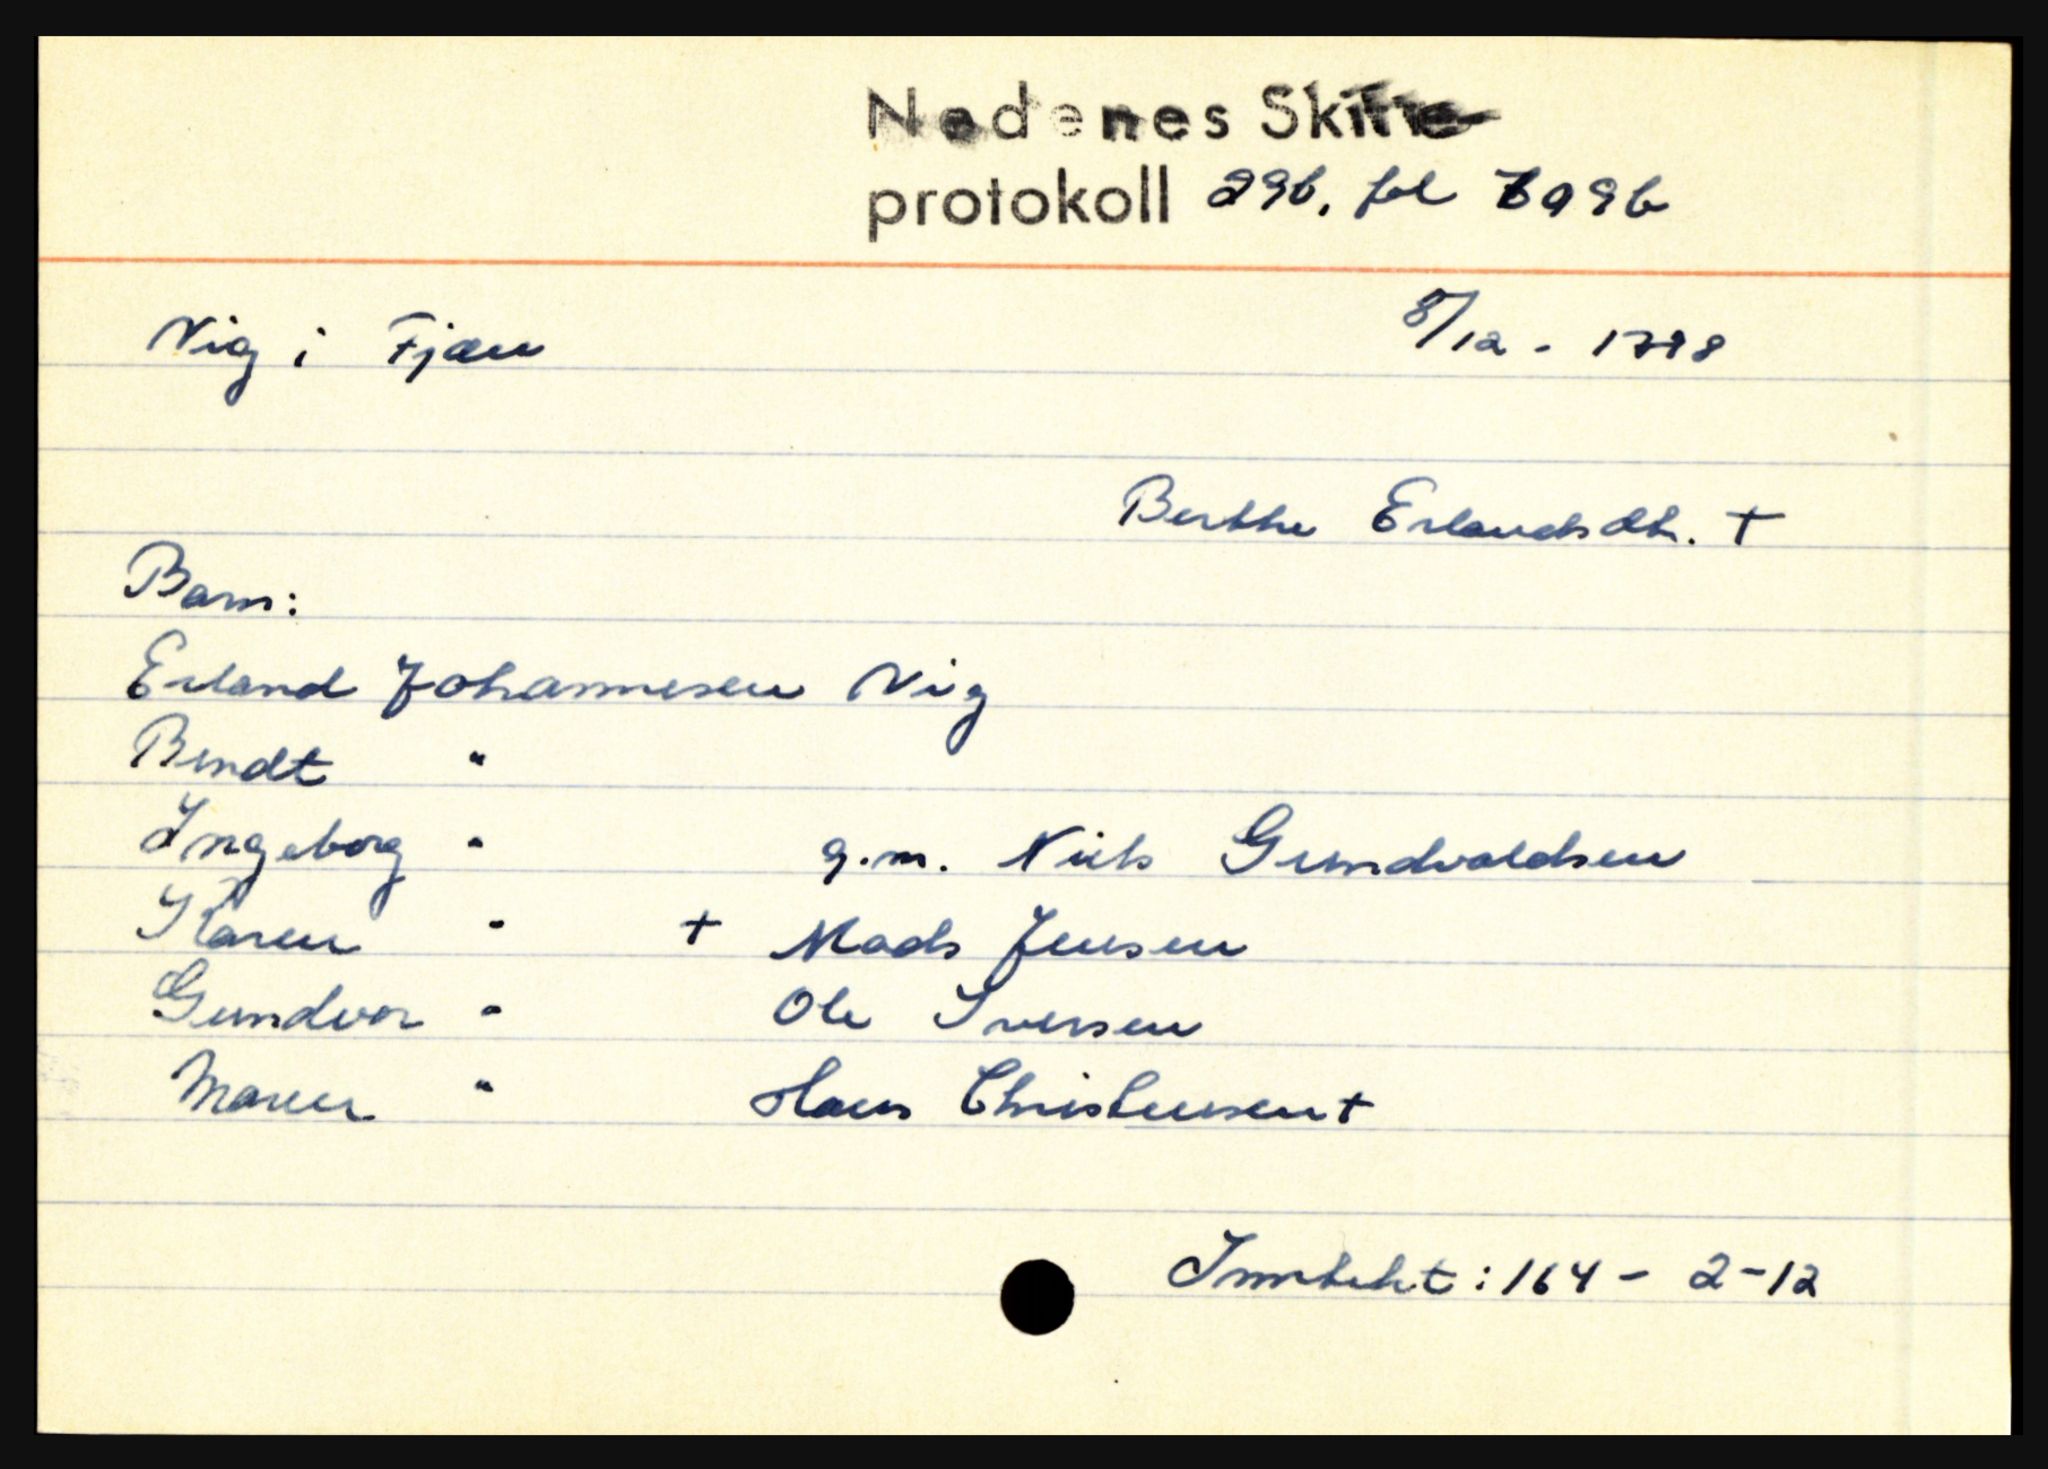 Nedenes Skifte
protokoll 29b, fol 699b
Vig i Fjære 8/12 - 1798
Berthe Erlandsdtr. +
Barn:
Erland Johannesen Vig
Bendt "
Ingeborg " g.m. Niels Gundvaldsen
Karen " + Mads Jensen
Gundvor " Ole Iversen
Maren " Hans Christensen +
Inntekt: 164 - 2-12